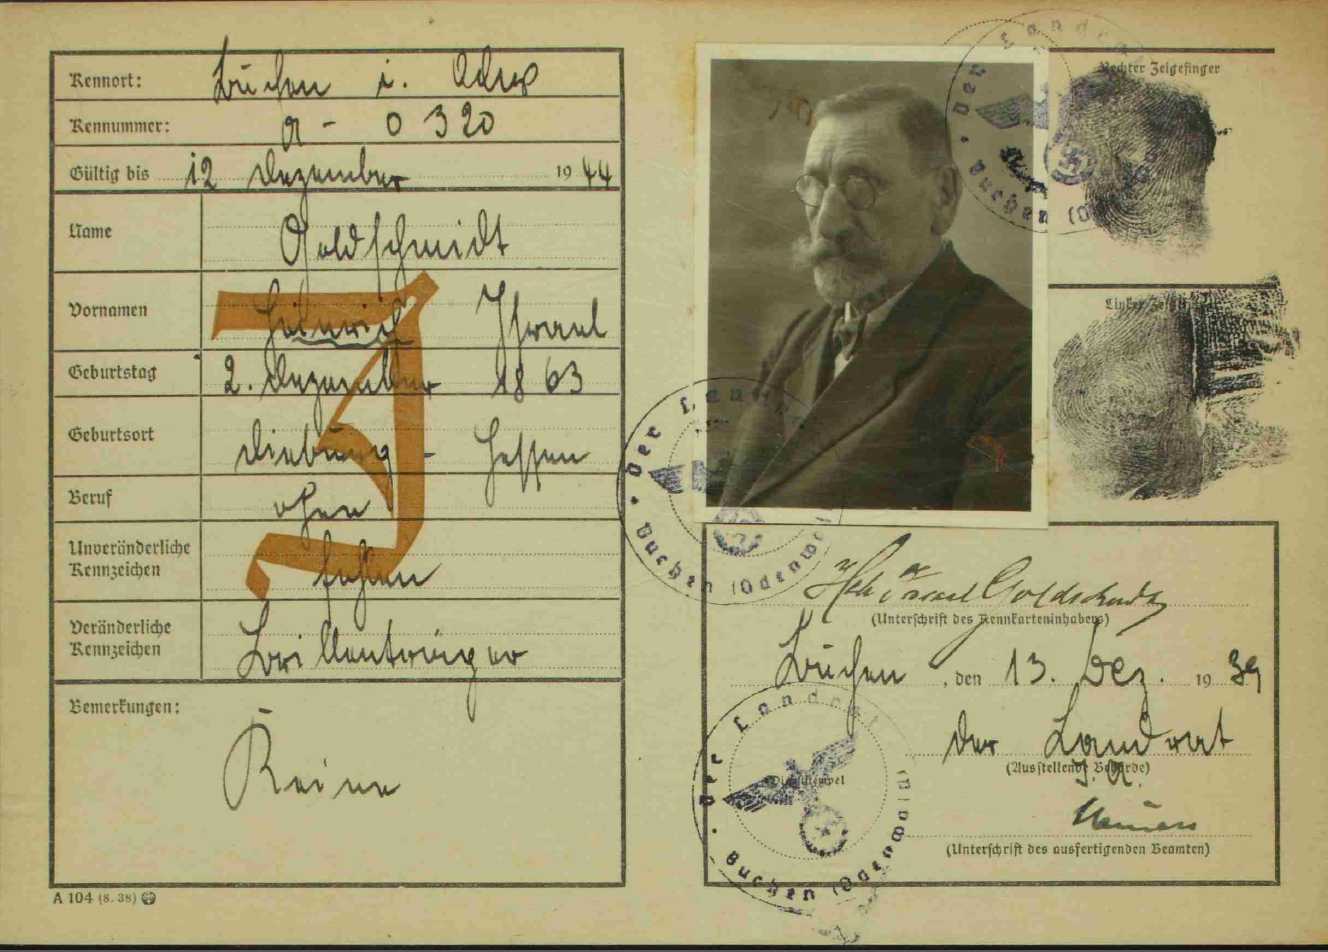 Kennort: Buchen i. Odw
Kennummer: A - 0320
Gültig bis 12 Dezember 1944
Name Goldschmidt
Vornamen Heinrich Israel
Geburtstag 2. Dezember 1863
Geburtsort Dieburg - Hessen
Beruf ohne
Unveränderliche Kennzeichen fehlen
Veränderliche Kennzeichen Brillenträger
Bemerkungen:
Keine
A 104 (8. 38)
J
Rechter Zeigefinger
Linker Zeigefinger
Der Landrat Buchen (Odenwald)
Der Landrat Buchen (Odenwald)
Israel Goldschmidt
(Unterschrift des Kennkarteninhabers)
Buchen, den 13. Dez. 1939
Der Landrat
(Ausstellende Behörde)
J. A.
Dienststempel
Der Landrat Buchen (Odenwald)
(Unterschrift des ausfertigenden Beamten)